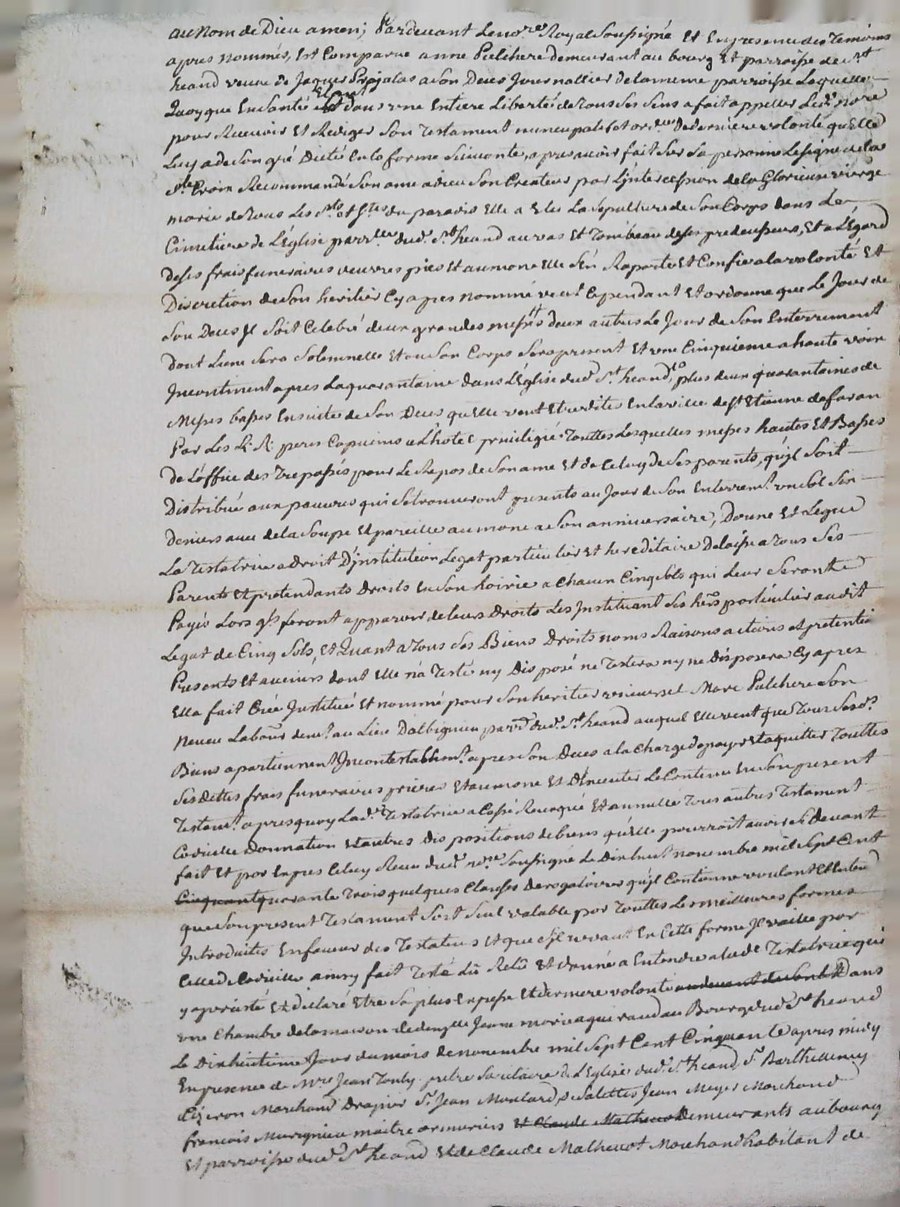 au Nom de Dieu amen; Pardevant Le nore Royal Soussigné Et En presence des Temoins
apres nommés, Est Comparue anne Pulchere demeurant au bourg Et parroisse de St
heand veuve de Jaques a Son Deces Journallier de la meme parroisse Laquelle
Quoyque En Santé Et dans une Entiere Liberté de Tous Ses Sens a fait appeller Ledt nore
pour Recevoir Et Rediger Son Testament nuncupatif et ordce de derniere volonté qu'Elle
Luy a de Son gré Dicté En la forme Suivante, apres avoir fait Sur Sa personne Le Signe de la
Ste Croix Recommandé Son ame a dieu Son Createur par L'intercession de la Glorieuse vierge
marie de Tous Les Sts et Stes du paradis Elle a Elu La Sepulture de Son Corps dans Le
Cimetiere de L'Eglise parrlle dud. St heand au vas Et Tombeau de Ses predecesseurs, Et a L'Egard
de Ses frais funeraires œuvres pies Et aumone Elle S'En Raporte Et Confie a la volonté Et
Discretion de Son heritier Cy apres nommé veut Cependant Et ordonne que Le Jour de
Son Deces Il Soit Celebré deux grandes messes deux autres Le Jour de Son Enterrement
dont L'une Sera Solemnelle Et ou Son Corps Sera present Et une Cinquieme a haute voix
Incontinent apres La quarantaine dans L'Eglise dud. St heand, plus deux quarantaines de
Messes basses En suite de Son Deces qu'Elle veut Etre dites En la ville de St Etienne de furan
Par Les R. R. peres Capucins a L'hotel privilegié Touttes Lesquelles messes hautes Et Basses
De L'office des Trepassés pour Le Repos de Son ame Et de Celuy de Ses parents, qu'il Soit
Distribué aux pauvres qui Se trouveront presents au Jour de Son Enterremt un Sol Six
deniers avec de la Soupe Et pareille aumone a Son anniversaire, Donne Et Legue
La Testatrice a Droit D'institution Legat particulier Et hereditaire Delaisse a Tous Ses
Parents Et pretendants Droits En Son hoirie a Chacun Cinq Sols qui Leur Seront
Payés Lors qu'ils feront apparoir de leurs Droits Les Instituant Ses hers particuliers audit
Legat de Cinq Sols, Et Quant a Tous Ses Biens Droits noms Raisons actions Et pretentions
Presents Et avenirs dont Elle n'a Testé ny Disposé ne Testera ny ne Disposera Cy apres
Elle a fait Créé Institué Et nommé pour Son heritier universel Marc Pulchere Son
Neveu Labour demt au Lieu Dalbignieu parse dud. St heand auquel Elle veut que Tous Sesds
Biens apartiennent Incontestablemt apres Son Deces a la Charge de payer Et aquitter Touttes
Ses Dettes frais funeraires prieres Et aumone Et D'Executer Le Contenu En Son present
Testamt apres quoy Lade Testatrice a Cassé Revoqué Et annullé Tous autres Testament
Codicille Donnation Et autres dispositions de biens qu'elle pourroit avoir Cy Devant
fait Et par Exprès Celuy Reçu dud. nore Soussigné Le Dix huit novembre mil Sept Cent
Cinquant quarante Trois quelques Clauses Derogatoires qu'il Contienne voulant
que Son present Testament Soit Seul valable par Touttes Les meilleures formes
Introduites En faveur des Testateurs Et que S'il ne vaut En Cette forme Il vaille par
Celle De Codicille ainsy fait Testé Lû Relû Et donné a Entendre a lade Testatrice qui
y a persisté Et declaré Etre Sa plus Expresse Et derniere volonté Dans
une Chambre de la maison de demelle Jeanne marie au Bourg dud. St heand
Le Dix huitieme Jour du mois de novembre mil Sept Cent Cinquante apres midy
En presence de Mre Jean pretre Secretaire de L'Eglise dud. St heand Sr Barthelemy
Marchand Drapier Sr Jean Moulard Jean Meyer Marchand
francois maitre armurier Et Claude Mathevot Demeurants au bourg
Et parroisse dud. St heand Et de Claude Mathevot Marchand habitant de